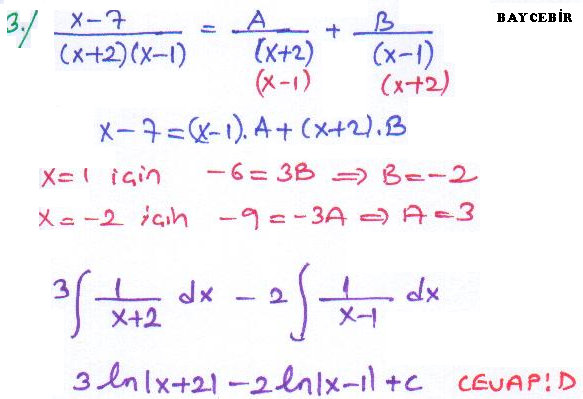 BAYCEBİR
3./ x-7 / (x+2)(x-1) = A / (x+2) + B / (x-1)
(x-1) (x+2)
x-7=(x-1).A+(x+2).B
x=1 için -6=3B ⇒ B=-2
x=-2 için -9=-3A ⇒ A=3
3∫ 1/(x+2) dx - 2∫ 1/(x-1) dx
3 ln|x+2|-2 ln|x-1|+c CEVAP:D